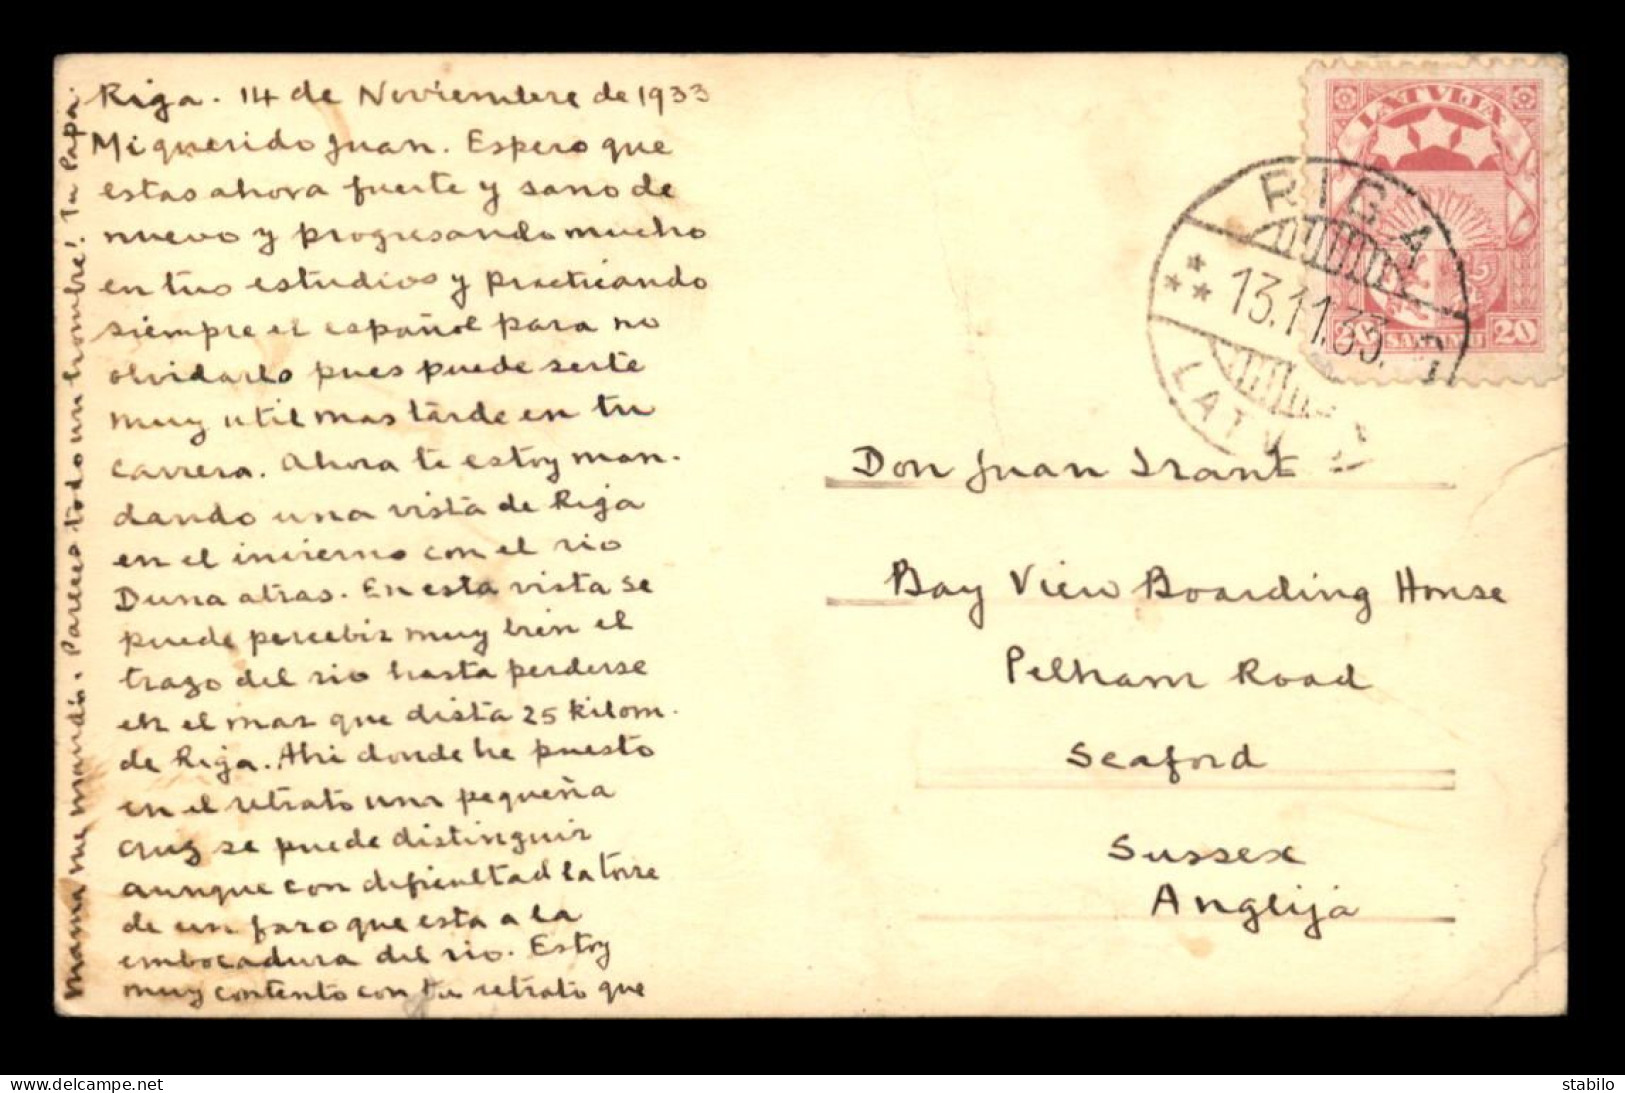 Riga. 14 de Noviembre de 1933
Mi querido Juan. Espero que
estas ahora fuerte y sano de
nuevo y progresando mucho
en tus estudios y practicando
siempre el español para no
olvidarlo pues puede serte
muy util mas tarde en tu
carrera. Ahora te estoy man-
dando una vista de Riga
en el invierno con el rio
Duna atras. En esta vista se
puede percebir muy bien el
trazo del rio hasta perderse
en el mar que dista 25 kilom.
de Riga. Ahi donde he puesto
en el retrato una pequeña
cruz se puede distinguir
aunque con dificultad la torre
de un faro que esta a la
embocadura del rio. Estoy
muy contento con tu retrato que
mama me mandó. Pareces todo un hombre! Tu Papá.
LATVIJA
20 SANTIMU 20
RIGA
13.11.33.
LATV
Don Juan
Bay View Boarding House
Pelham Road
Seaford
Sussex
Anglija
delcampe.net
stabilo